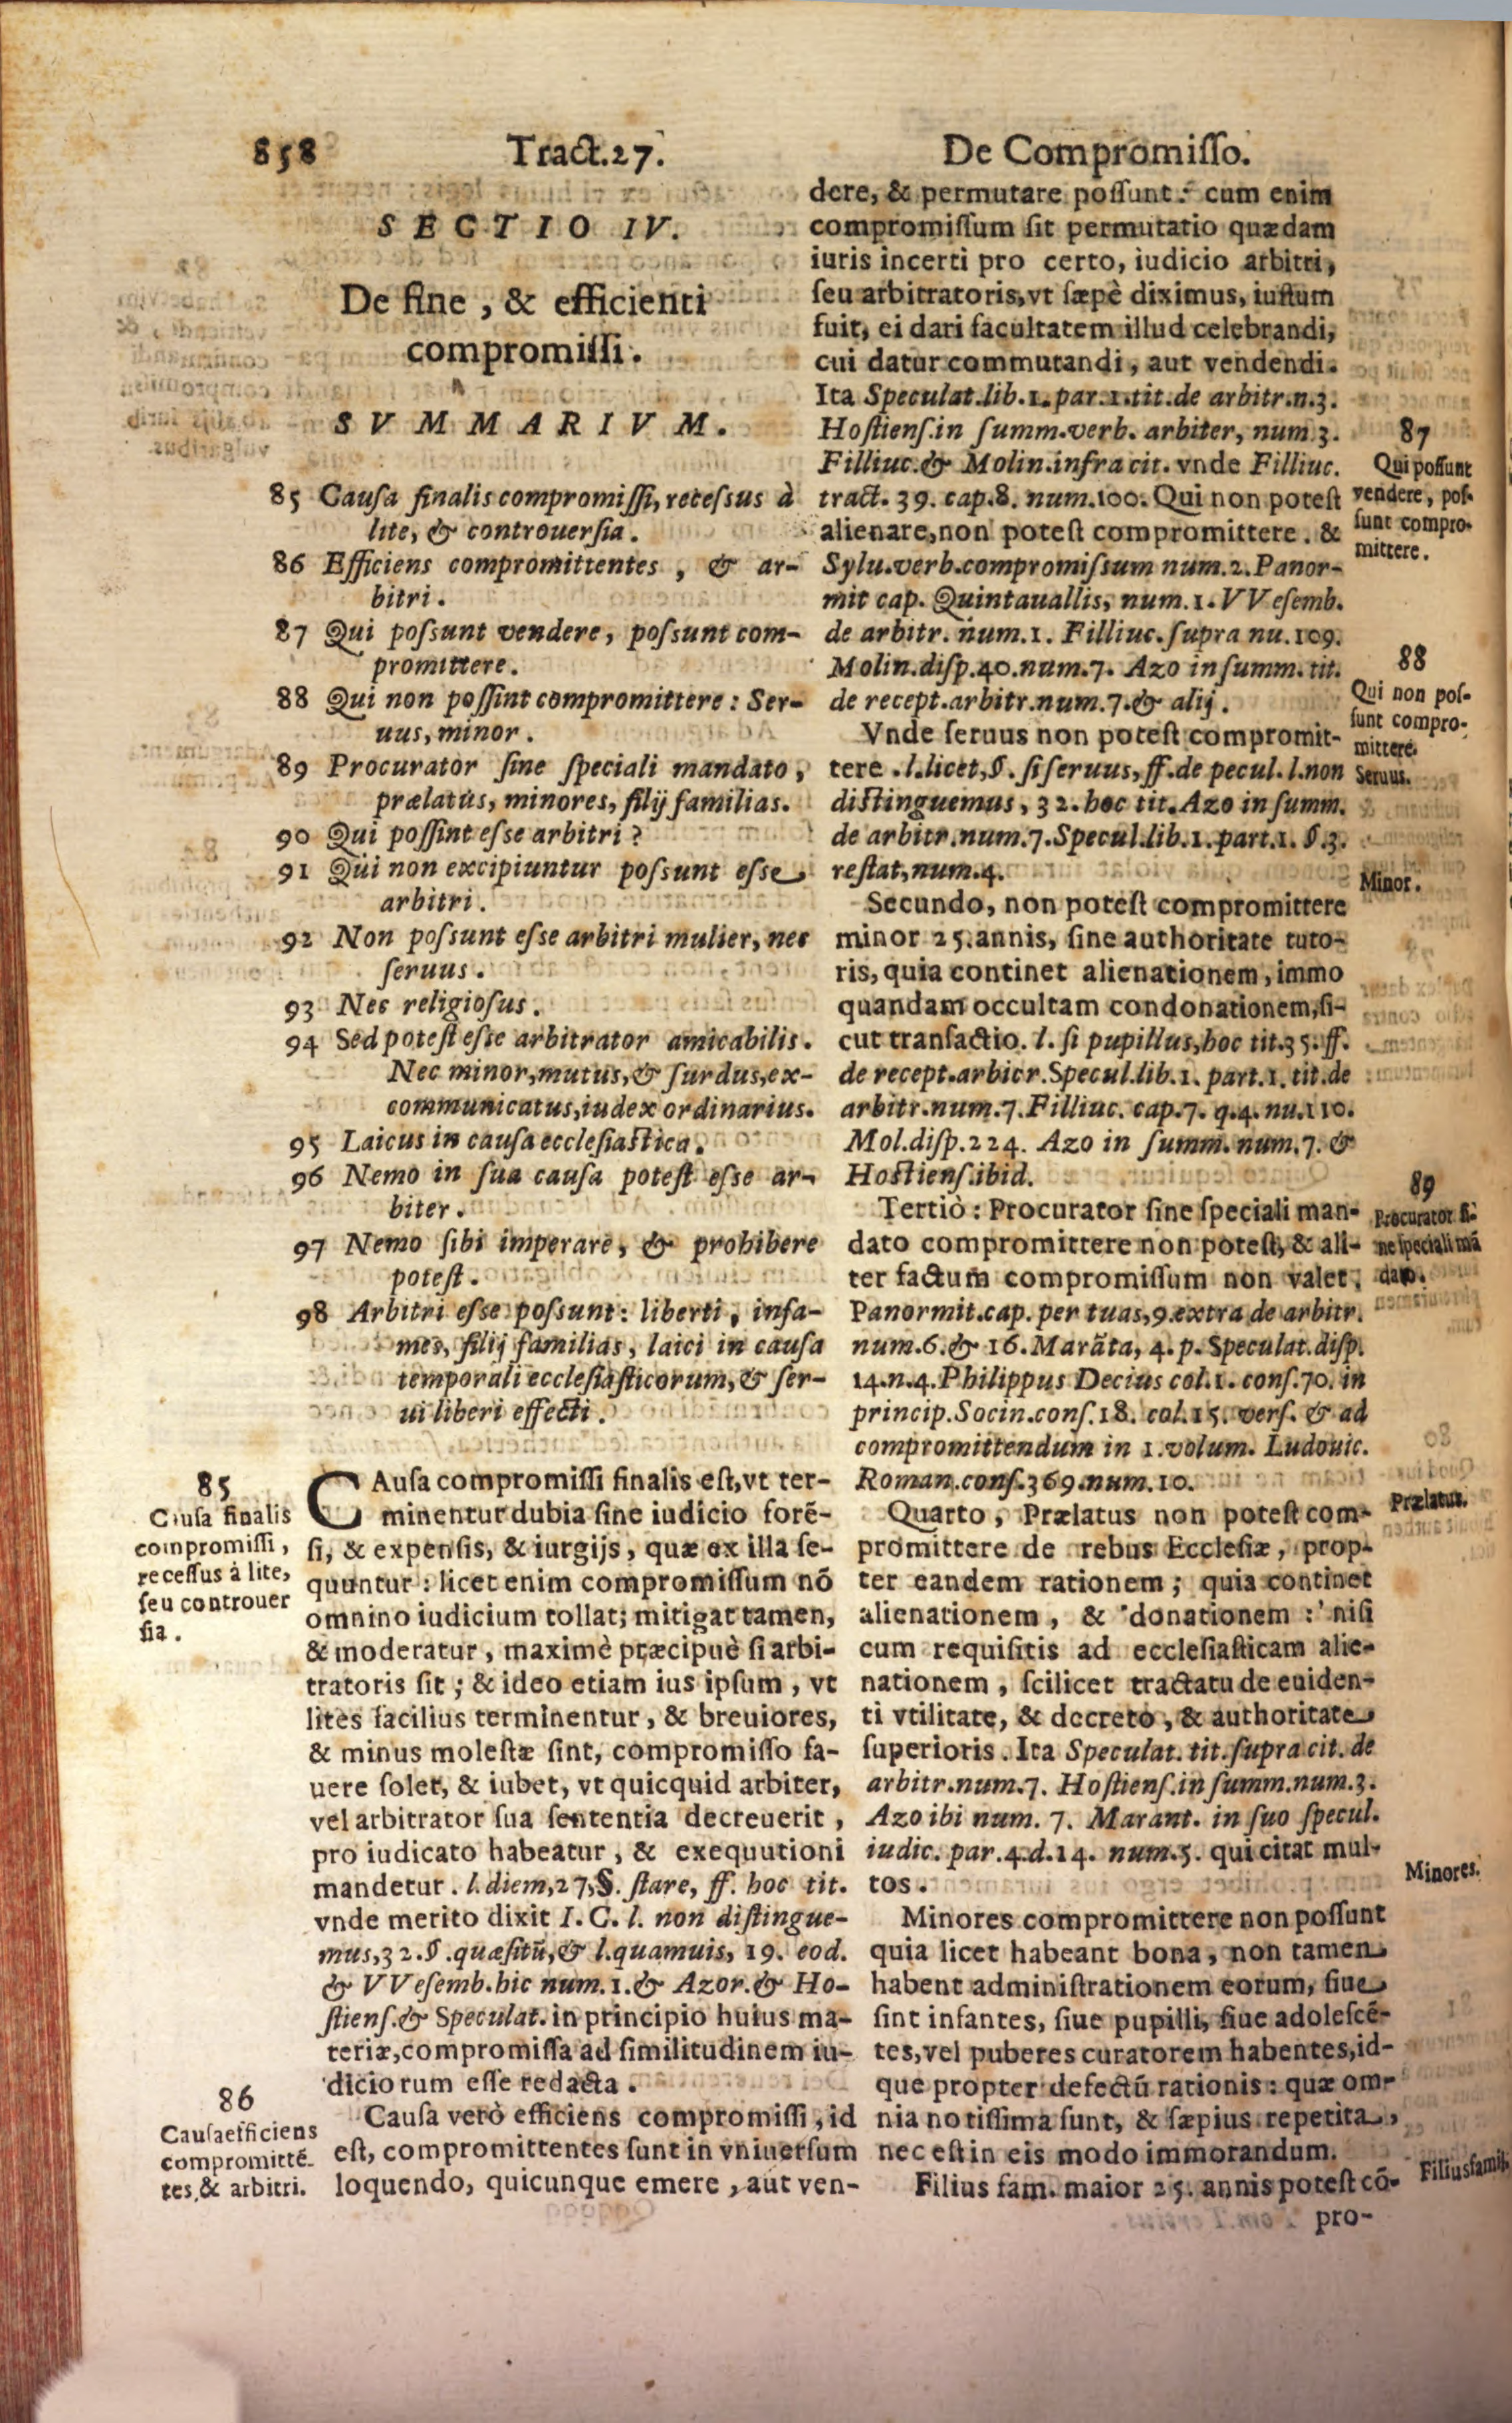 858 Tract.27. De Compromiſſo.
SECTIO IV.
De fine, & efficienti
compromiſſi.
SVMMARIVM.
85 Cauſa finalis compromiſſi, receſsus à
lite, & controuerſia.
86 Efficiens compromittentes, & ar-
bitri.
87 Qui poſsunt vendere, poſsunt com-
promittere.
88 Qui non poſſint compromittere: Ser-
uus, minor.
89 Procurator ſine ſpeciali mandato,
prælatus, minores, filij familias.
90 Qui poſſint eſse arbitri?
91 Qui non excipiuntur poſsunt eſse
arbitri.
92 Non poſsunt eſse arbitri mulier, nec
ſeruus.
93 Nec religioſus.
94 Sed poteſt eſse arbitrator amicabilis.
Nec minor, mutus, & ſurdus, ex-
communicatus, iudex ordinarius.
95 Laicus in cauſa eccleſiaſtica.
96 Nemo in ſua cauſa poteſt eſse ar-
biter.
97 Nemo ſibi imperare, & prohibere
poteſt.
98 Arbitri eſse poſsunt: liberti, infa-
mes, filij familias, laici in cauſa
temporali eccleſiaſticorum, & ſer-
ui liberi effecti.
85
Cauſa finalis
compromiſſi,
receſſus à lite,
ſeu controuer
ſia.
CAuſa compromiſſi finalis eſt, vt ter-
minentur dubia ſine iudicio forē-
ſi, & expenſis, & iurgijs, quæ ex illa ſe-
quuntur: licet enim compromiſſum nō
omnino iudicium tollat; mitigat tamen,
& moderatur, maximè præcipuè ſi arbi-
tratoris ſit; & ideo etiam ius ipſum, vt
lites facilius terminentur, & breuiores,
& minus moleſtæ ſint, compromiſſo fa-
uere ſolet, & iubet, vt quicquid arbiter,
vel arbitrator ſua ſententia decreuerit,
pro iudicato habeatur, & exequutioni
mandetur. l. diem, 27, §. ſtare, ff. hoc tit.
vnde merito dixit I.C. l. non diſtingue-
mus, 32. §. quæſitū, & l. quamuis, 19. eod.
& VVeſemb. hic num. 1. & Azor. & Ho-
ſtienſ. & Speculat. in principio huius ma-
teriæ, compromiſſa ad ſimilitudinem iu-
diciorum eſſe redacta.
86
Cauſa efficiens
compromittē-
tes, & arbitri.
Cauſa verò efficiens compromiſſi, id
eſt, compromittentes ſunt in vniuerſum
loquendo, quicunque emere, aut ven-
dere, & permutare poſſunt: cum enim
compromiſſum ſit permutatio quædam
iuris incerti pro certo, iudicio arbitri,
ſeu arbitratoris, vt ſæpè diximus, iuſtum
fuit, ei dari facultatem illud celebrandi,
cui datur commutandi, aut vendendi.
Ita Speculat. lib. 1. par. 1. tit. de arbitr. n. 3.
Hoſtienſ. in ſumm. verb. arbiter, num 3.
Filliuc. & Molin. infra cit. vnde Filliuc.
tract. 39. cap. 8. num. 100. Qui non poteſt
alienare, non poteſt compromittere. &
Sylu. verb. compromiſsum num. 2. Panor-
mit cap. Quintauallis, num. 1. VVeſemb.
de arbitr. num. 1. Filliuc. ſupra nu. 109.
Molin. diſp. 40. num. 7. Azo in ſumm. tit.
de recept. arbitr. num. 7. & alij.
87
Qui poſſunt
vendere, poſ-
ſunt compro-
mittere.
88
Qui non poſ-
ſunt compro-
mittere.
Seruus.
Vnde ſeruus non poteſt compromit-
tere. l. licet, §. ſi ſeruus, ff. de pecul. l. non
diſtinguemus, 32. hoc tit. Azo in ſumm.
de arbitr. num. 7. Specul. lib. 1. part. 1. §. 3.
reſtat, num. 4.
Minor.
Secundo, non poteſt compromittere
minor 25. annis, ſine authoritate tuto-
ris, quia continet alienationem, immo
quandam occultam condonationem, ſi-
cut tranſactio. l. ſi pupillus, hoc tit. 35. ff.
de recept. arbitr. Specul. lib. 1. part. 1. tit. de
arbitr. num. 7. Filliuc. cap. 7. q. 4. nu. 110.
Mol. diſp. 224. Azo in ſumm. num. 7. &
Hoſtienſ. ibid.
89
Procurator ſi-
ne ſpeciali mā
dato.
Tertiò: Procurator ſine ſpeciali man-
dato compromittere non poteſt, & ali-
ter factum compromiſſum non valet,
Panormit. cap. per tuas, 9. extra de arbitr.
num. 6. & 16. Marāta, 4. p. Speculat. diſp.
14. n. 4. Philippus Decius col. 1. conſ. 70. in
princip. Socin. conſ. 18. col. 15. verſ. & ad
compromittendum in 1. volum. Ludouic.
Roman. conſ. 369. num. 10.
Prælatus.
Quarto, Prælatus non poteſt com-
promittere de rebus Eccleſiæ, prop-
ter eandem rationem; quia continet
alienationem, & donationem: niſi
cum requiſitis ad eccleſiaſticam alie-
nationem, ſcilicet tractatu de euiden-
ti vtilitate, & decreto, & authoritate
ſuperioris. Ita Speculat. tit. ſupra cit. de
arbitr. num. 7. Hoſtienſ. in ſumm. num. 3.
Azo ibi num. 7. Marant. in ſuo ſpecul.
iudic. par. 4. d. 14. num. 5. qui citat mul-
tos.
Minores.
Minores compromittere non poſſunt
quia licet habeant bona, non tamen
habent adminiſtrationem eorum, ſiue
ſint infantes, ſiue pupilli, ſiue adoleſcē-
tes, vel puberes curatorem habentes, id-
que propter defectū rationis: quæ om-
nia notiſſima ſunt, & ſæpius repetita,
nec eſt in eis modo immorandum.
Filiusfamil.
Filius fam. maior 25. annis poteſt cō-
pro-